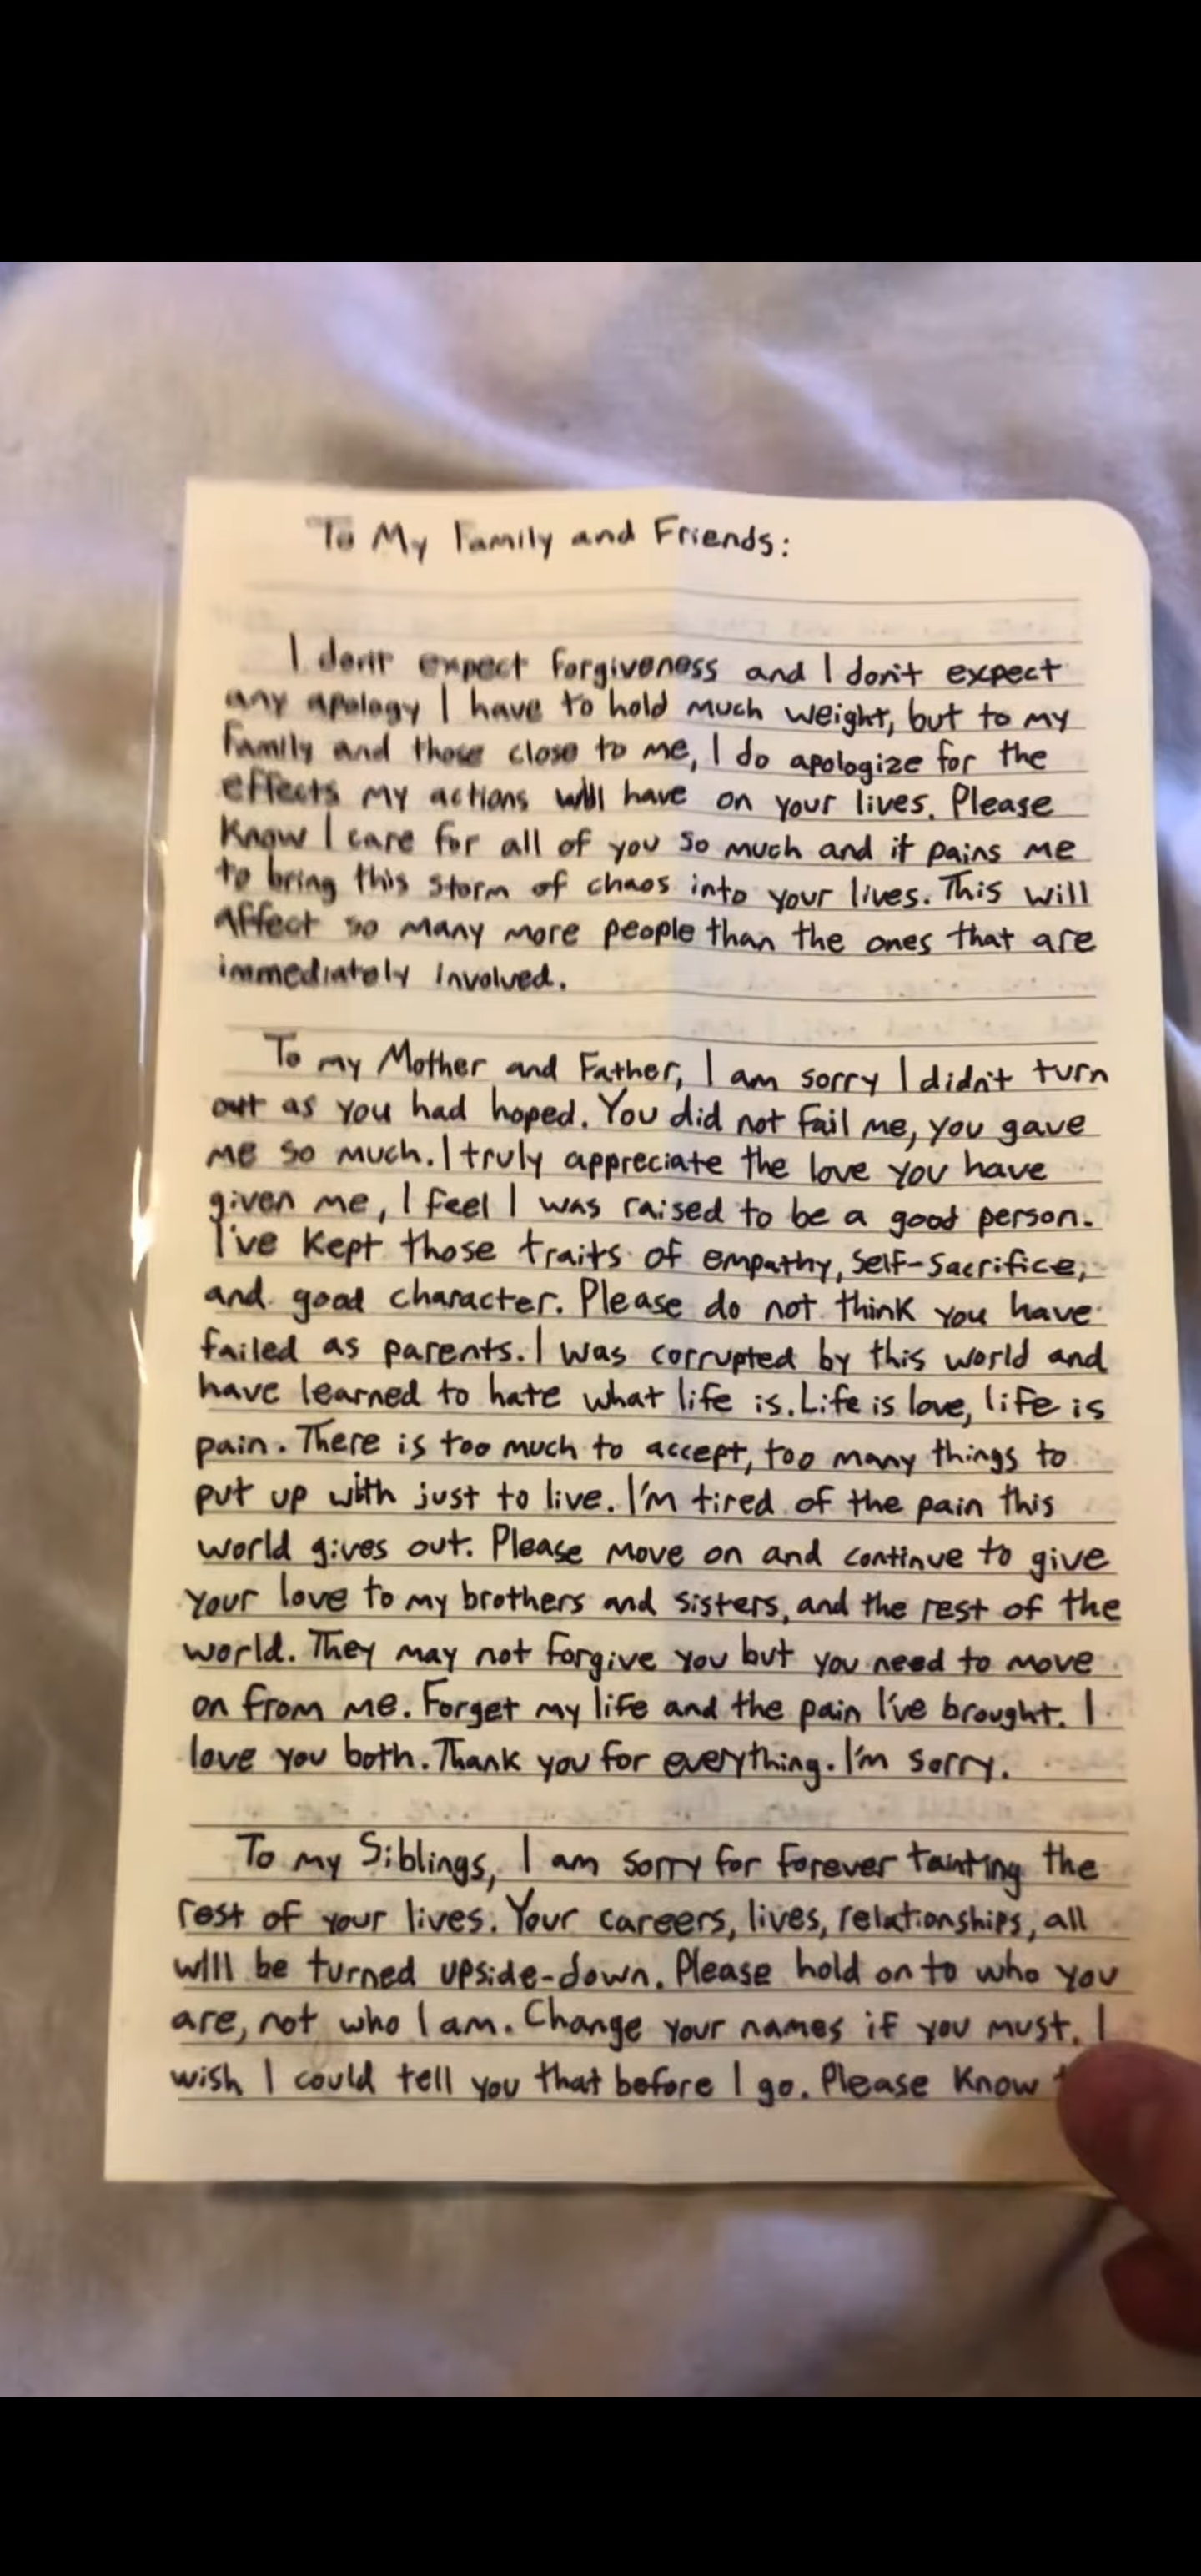 To My Family and Friends:
I don't expect forgiveness and I don't expect
any apology I have to hold much weight, but to my
family and those close to me, I do apologize for the
effects my actions will have on your lives. Please
know I care for all of you so much and it pains me
to bring this storm of chaos into your lives. This will
affect so many more people than the ones that are
immediately involved.
To my Mother and Father, I am sorry I didn't turn
out as you had hoped. You did not fail me, you gave
me so much. I truly appreciate the love you have
given me, I feel I was raised to be a good person.
I've kept those traits of empathy, self-sacrifice,
and good character. Please do not think you have
failed as parents. I was corrupted by this world and
have learned to hate what life is. Life is love, life is
pain. There is too much to accept, too many things to
put up with just to live. I'm tired of the pain this
world gives out. Please move on and continue to give
your love to my brothers and sisters, and the rest of the
world. They may not forgive you but you need to move
on from me. Forget my life and the pain I've brought. I
love you both. Thank you for everything. I'm sorry.
To my Siblings, I am sorry for forever tainting the
rest of your lives. Your careers, lives, relationships, all
will be turned upside-down. Please hold on to who you
are, not who I am. Change your names if you must. I
wish I could tell you that before I go. Please know